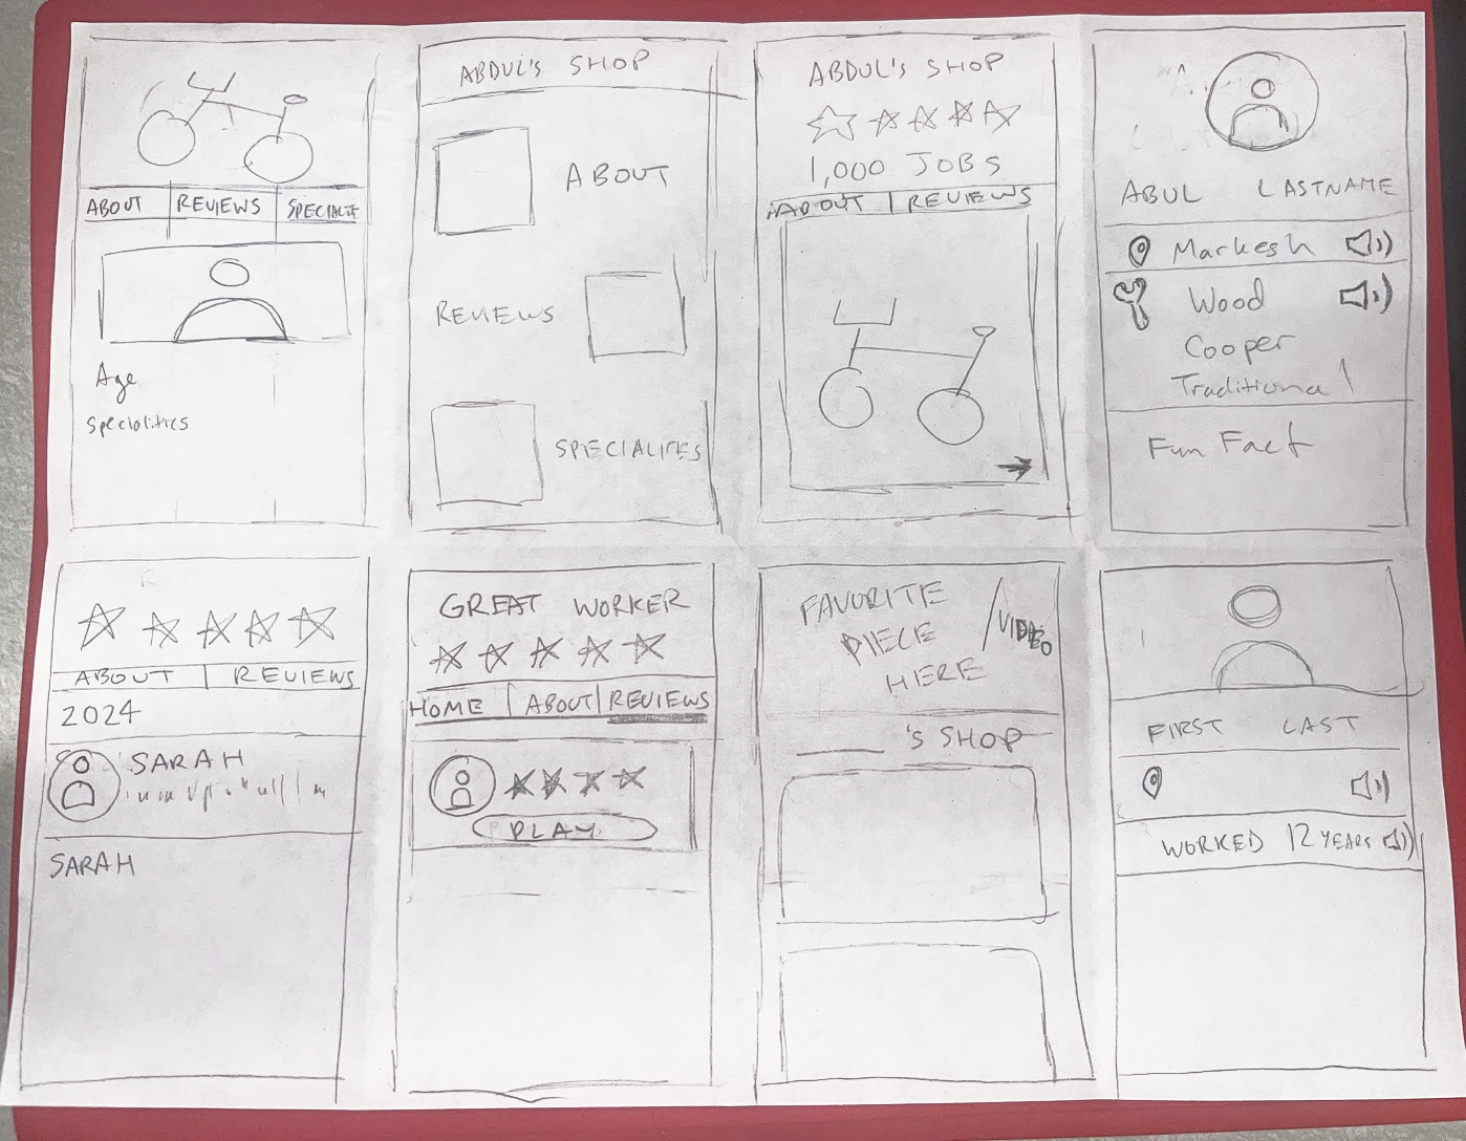 ABOUT REVIEWS SPECIALITE
Age
Specialities
ABDUL'S SHOP
ABOUT
REVIEWS
SPECIALITES
ABDUL'S SHOP
1,000 JOBS
ABOUT REVIEWS
ABUL LASTNAME
Markesh
Wood
Cooper
Traditional
Fun Fact
ABOUT REVIEWS
2024
SARAH
SARAH
GREAT WORKER
HOME ABOUT REVIEWS
PLAY
FAVORITE
PIECE /VIDEO
HERE
'S SHOP
FIRST LAST
WORKED 12 YEARS